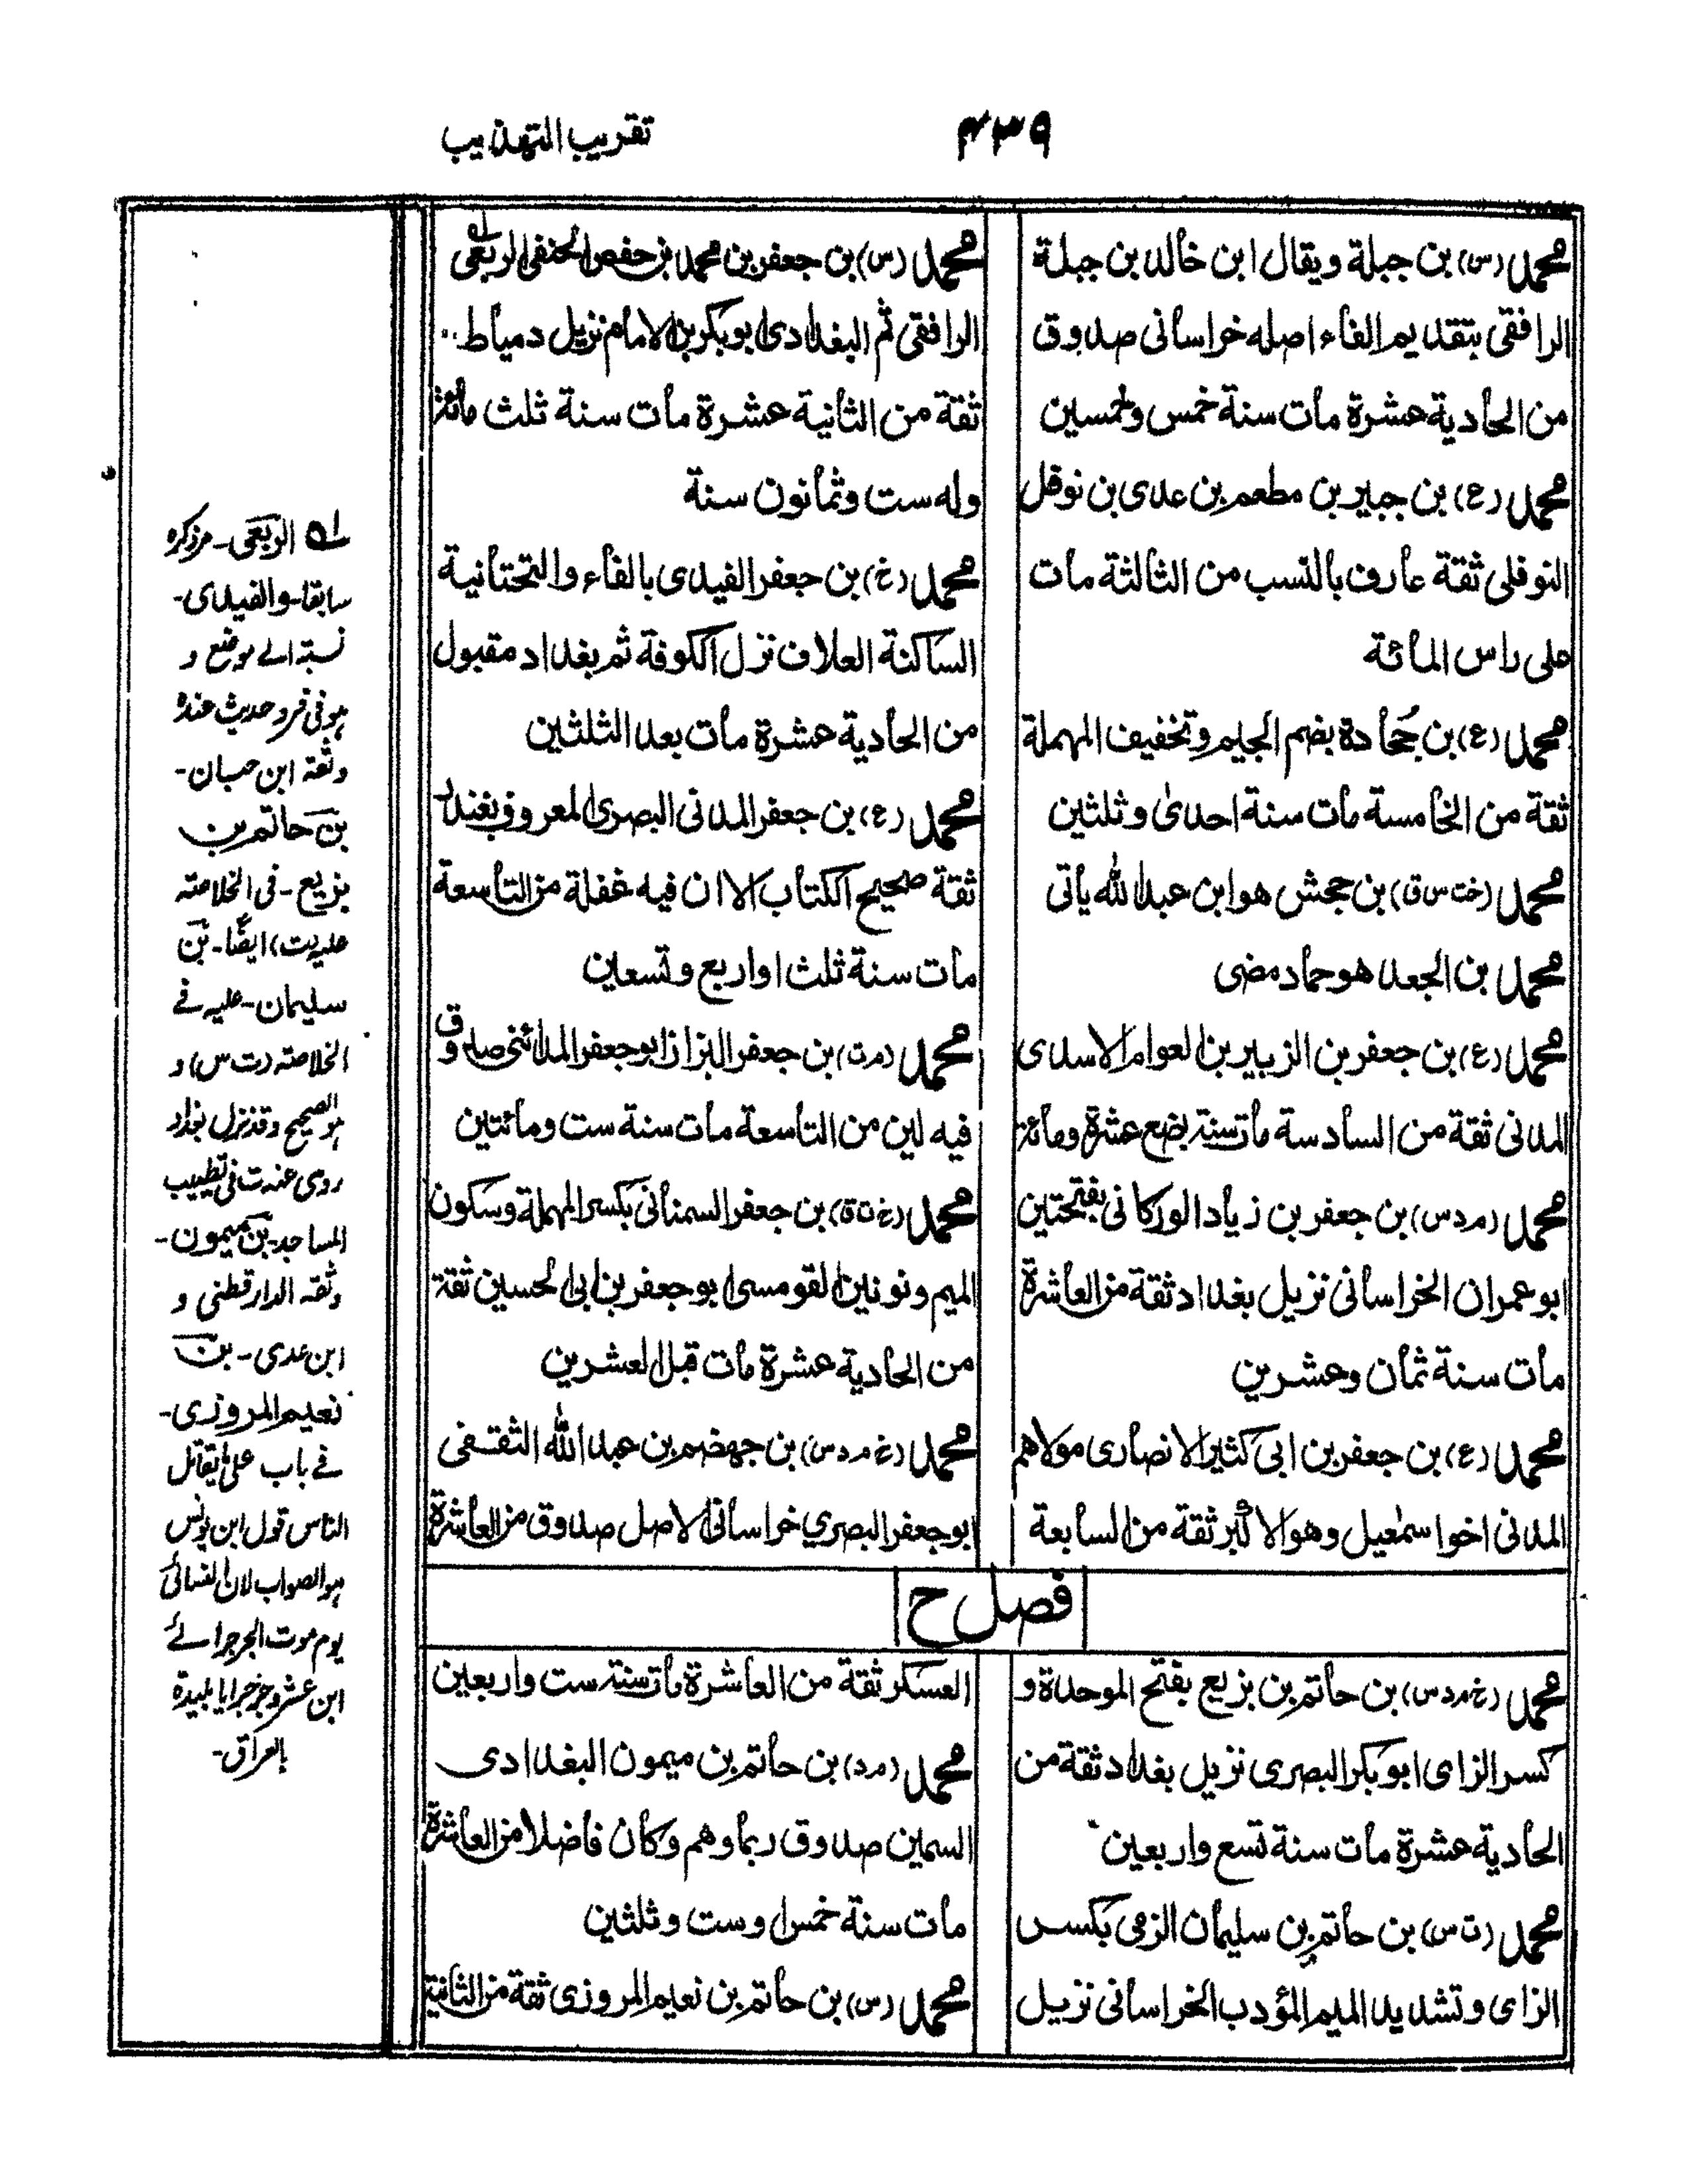 ٤٣٩
تقريب التهذيب
محمد (س) بن جبلة ويقال ابن خالد بن جبلة
الرافقى بتقديم الفاء اصله خراسانى صدوق
من الحادية عشرة مات سنة خمس وخمسين
محمد (ع) بن جبير بن مطعم بن عدى بن نوفل
النوفلى ثقة عارف بالنسب من الثالثة مات
على راس المائة
محمد (ع) بن جُحادة بضم الجيم وتخفيف المهملة
ثقة من الخامسة مات سنة احدى وثلثين
محمد (خت س ق) بن جحش هو ابن عبد الله ياتى
محمد بن الجعد هو حماد مضى
محمد (ع) بن جعفر بن الزبير بن العوام الاسدى
المدنى ثقة من السادسة مات سنة بضع عشرة ومائة
محمد (م د س) بن جعفر بن زياد الوركانى بفتحتين
ابو عمران الخراسانى نزيل بغداد ثقة من العاشرة
مات سنة ثمان وعشرين
محمد (ع) بن جعفر بن ابى كثير الانصارى مولاهم
المدنى اخو اسمعيل وهو الاكبر ثقة من السابعة
محمد (س) بن جعفر بن محمد بن حفص الحنفى الربعى له
الرافقى ثم البغدادى ابو بكر بن الامام نزيل دمياط
ثقة من الثانية عشرة مات سنة ثلث مائة
وله ست وثمانون سنة
محمد (خ) بن جعفر الفيدى بالفاء والتحتانية
الساكنة العلاف نزل الكوفة ثم بغداد مقبول
من الحادية عشرة مات بعد الثلثين
محمد (ع) بن جعفر المدنى البصرى المعروف بغندر
ثقة صحيح الكتاب الا ان فيه غفلة من التاسعة
مات سنة ثلث او اربع وتسعين
محمد (م ت) بن جعفر البزاز ابو جعفر المدائنى صدوق
فيه لين من التاسعة مات سنة ست ومائتين
محمد (خ ت ق) بن جعفر السمنانى بكسر المهملة وسكون
الميم ونونين القومسى ابو جعفر بن ابى الحسين ثقة
من الحادية عشرة مات قبل العشرين
محمد (خ م د س) بن جهضم بن عبد الله الثقفى
ابو جعفر البصري خراسانى الاصل صدوق من العاشرة
فصل ح
محمد (خ م د س) بن حاتم بن بزيع بفتح الموحدة و
كسر الزاى ابو بكر البصرى نزيل بغداد ثقة من
الحادية عشرة مات سنة تسع واربعين
محمد (ت س) بن حاتم بن سليمان الزمى بكسر
الزاى وتشديد الميم المؤدب الخراسانى نزيل
العسكر ثقة من العاشرة مات سنة ست واربعين
محمد (م د) بن حاتم بن ميمون البغدادى
السمين صدوق ربما وهم وكان فاضلا من العاشرة
مات سنة خمس او ست وثلثين
محمد (س) بن حاتم بن نعيم المروزى ثقة من الثانية
له الربعى - مر ذكره
سابقا - والفيدى -
نسبة الى موضع و
هو فى فرد حديث عنده
وثقه ابن حبان -
بن حاتم بن
بزيع - فى الخلاصة
عليه (ت) ايضًا - بن
سليمان - عليه فى
الخلاصة (ت س) و
هو الصحيح وقد نزل بغداد
روى عنه ت فى تطييب
المساجد - بن ميمون -
وثقه الدارقطنى و
ابن عدى - بن
نعيم المروزى -
فى باب على ما يقاتل
الناس قول ابن يونس
هو الصواب لان النسائى
يوم موت الجرجرائى
ابن عشر وجرجرايا بليدة
بالعراق -